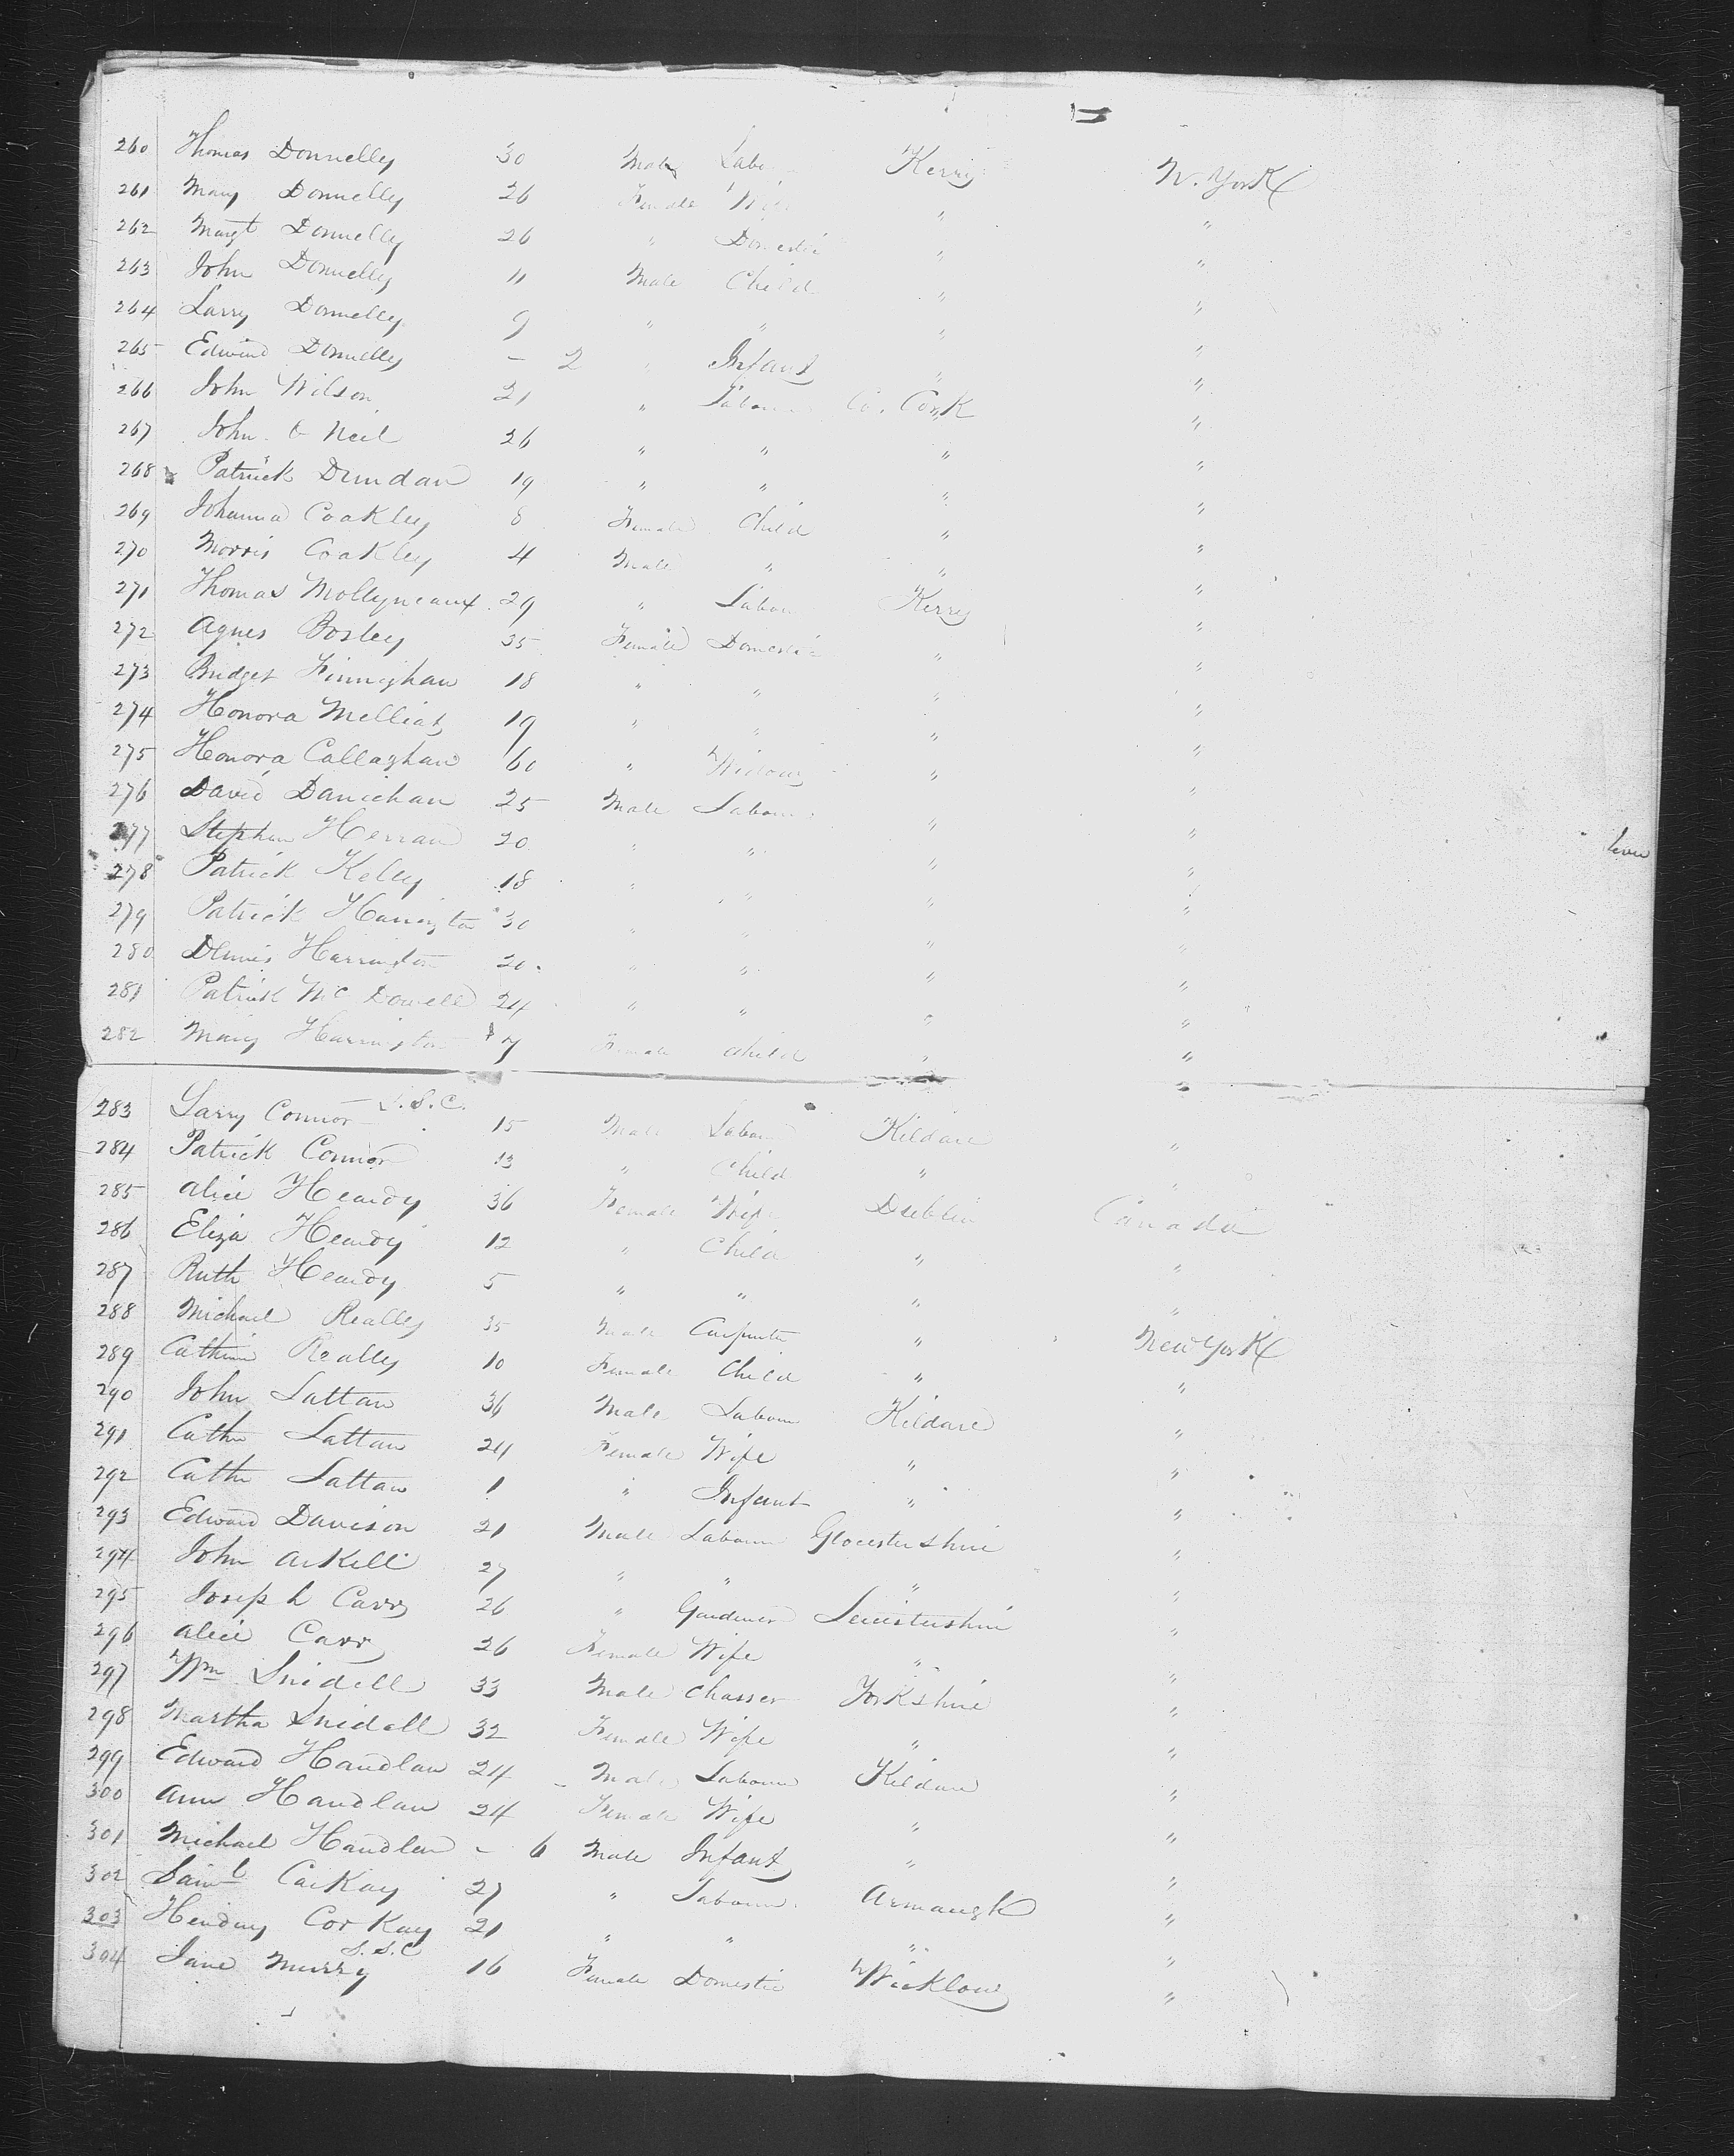 260 Thomas Donnelly 30 Male Labr Kerry N. York
261 Mary Donnelly 26 Female Wife " "
262 Margt Donnelly 26 " Domestic " "
263 John Donnelly 11 Male Child " "
264 Larry Donnelly 9 " " " "
265 Edward Donnelly - 2 " Infant " "
266 John Wilson 21 " Labour Co. Cork "
267 John O Neil 26 " " " "
268 Patrick Dundan 19 " " " "
269 Johanna Coakley 8 Female Child " "
270 Morris Coakley 4 Male " " "
271 Thomas Mollyneaux 29 " Labour Kerry "
272 Agnes Bosley 35 Female Domestic " "
273 Bridget Finnighan 18 " " " "
274 Honora 19 " " " "
275 Honora Callaghan 60 " Widow " "
276 David Danichan 25 Male Labour " "
277 Stephen Herran 20 " " " "
278 Patrick Kelly 18 " " " "
279 Patrick Harrington 30 " " " "
280 Dennis Harrington 20 " " " "
281 Patrick Mc Dowell 24 " " " "
282 Mary Harrington 7 Female Child " "
283 Larry Connor S.S.C. 15 Male Labour Kildare "
284 Patrick Connor 13 " Child " "
285 Alice Heardy 36 Female Wife Dublin Canada
286 Eliza Heardy 12 " Child " "
287 Ruth Heardy 5 " " " "
288 Michael Really 35 Male Carpenter " New York
289 Catherine Really 10 Female Child " "
290 John Lattan 36 Male Labour Kildare "
291 Cathe Lattan 24 Female Wife " "
292 Cathe Lattan 1 " Infant " "
293 Edward Davison 21 Male Labour Glocestershire "
294 John Arkell 27 " " " "
295 Joseph Carr 26 " Gardener Leicestershire "
296 Alice Carr 26 Female Wife " "
297 Wm Snidell 33 Male Chasser Yorkshire "
298 Martha Snidall 32 Female Wife " "
299 Edward Handlan 24 Male Labour Kildare "
300 Ann Handlan 24 Female Wife " "
301 Michael Handlan - 6 Male Infant " "
302 Saml CarKay 27 " Labour Armaugh "
303 CorKay 21 " " " "
304 Jane Murry S.S.C 16 Female Domestic Wicklow "